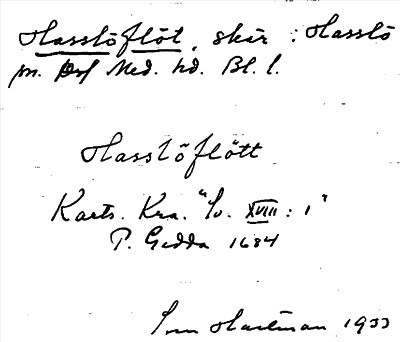 Hasslöflöt, skär : Hasslö
sn. Med. hd. Bl. l.
Hasslöflött
Karts. Kra. "Sv. XVIII : 1"
P. Gedda 1684
Sven Hartman 1933